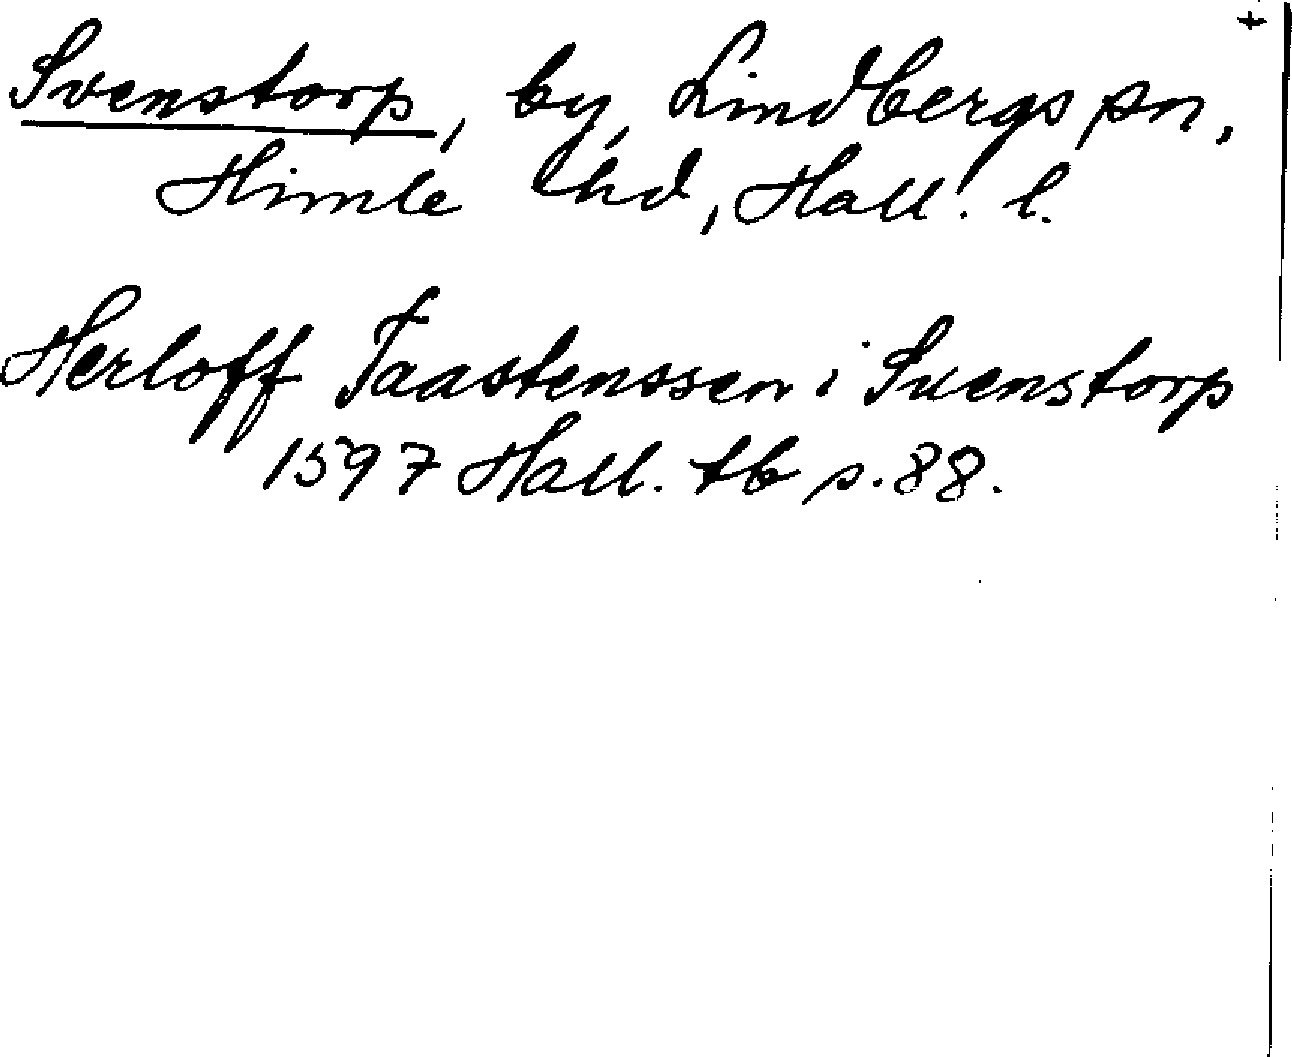 Svenstorp, by, Lindbergs sn,
Himle hd, Hall. l.
Herloff Taastenssen i Svenstorp
1597 Hall. tb s. 88.